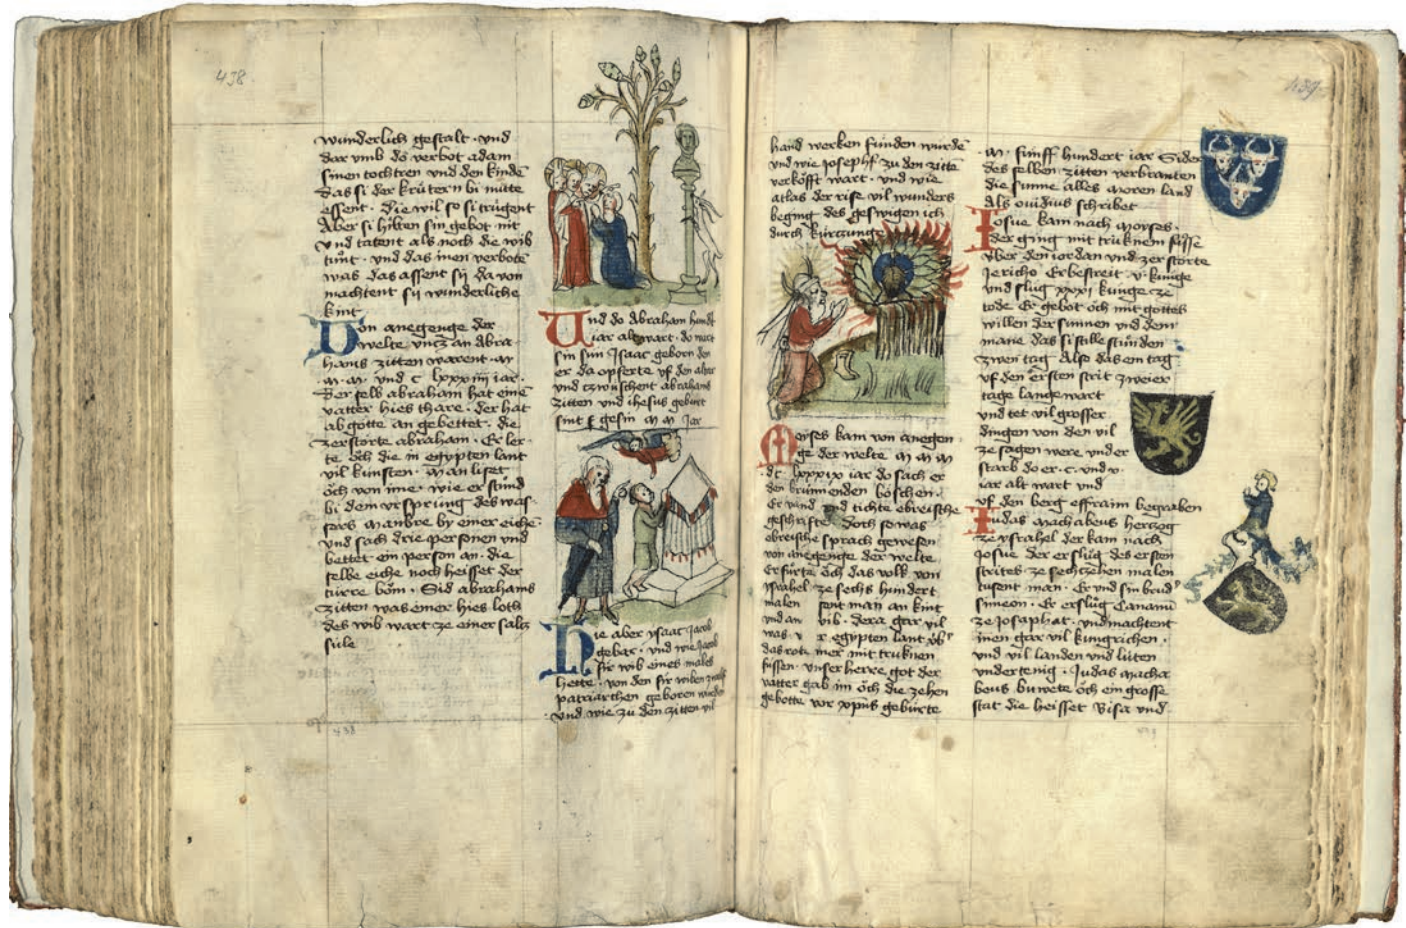 438
wunderlich gestalt · und
dar umb do verbot adam
sinen tochtren und den kinden
das si der krütern bi nütte
essent · die wil so si trügent
Aber si hilten sin gebot nit
und tatent als noch die wib
tünt · und das inen verbotē
was das assent sy da von
machtent sy wunderliche
kint
Von anegenge der
welte uncz an Abra
hams zitten warent · m
· m · m · und c lxxxiiii iar ·
Der selb abraham hat einē
vatter hies thare · der hat
ab gotte an gebettet · die
zerstorte abraham · Er ler
te öch die in egypten lant
vil kunsten · Man liset
öch von ime · wie er stünd
bi dem ursprung des was
sers Manbre by einer eiche
und sach drie personen und
bettet ein person an · die
selbe eiche noch heisset der
türre böm · Sid abrahams
zitten was einer hies loth
des wib wart ze einer salcz
süle
Und do Abraham hundt
iar alt wart · do wart
sin sun Isaac geborn den
er da opferte uf den alter
und czwüschent abrahams
zitten und ihesus geburt
sint gesin m m iar
Wie aber ysaac Jacob
gebar · und wie Jacob
fir wib eines males
hette · von den fir wiben
patriarchen geboren wurden
· und wie zu den zitten vil
438
439
hand werken funden wurdē
und wie Joseph zu den zittē
verköfft wart · und wie
atlas der rise vil wunders
beging des geswigen ich
durch kürczunge
Moyses kam von anegen
ge der welte m m m
· dc · lxxxix iar do sach er
den brünnenden böschen ·
Er vand und tichte ebreische
geschrifte · doch so was
ebreische sprach gewesen
von anegenge der welte
Er fürte öch das volk von
ysrahel ze sechs hundert
malen sent man an kint
und an wib · dera gar vil
was · egypten lant
das rote mer mit truknen
füssen · unser herre got der
vatter gab im öch die zehen
gebotte vor xpūs gebürte
· m · fünff hundert iar Sider
des selben zitten verbranten
die sunne alles moren land
Als ouidius schribet
Josue kam nach moyses ·
der ging mit truknem füsse
über den iordan und zer störte
Jericho Er bestreit · v · kunige
und slug xxxi kunge ze
tode · Er gebot öch mit gottes
willen der sunnen und dem
mane das si stille stünden
zwen tag Also das ein tag
uf den ersten strit zweier
tage lange wart
und tet vil grosser
dingen von den vil
ze sagen were und er
starb do er · c · und x ·
iar alt wart und
uf den berg effraim begraben
Judas Machabeus herczog
ze ysrahel der kam nach
Josue der er slüg des ersten
strites ze sechczehen malen
tusent man · Er und sin brud'
simeon · Er erslüg Cananū
ze Josaphat · und machtent
inen gar vil kungrichen ·
und vil landen und lüten
undertenig · Judas macha
beus buwete öch ein grosse
stat die heisset Bisa und